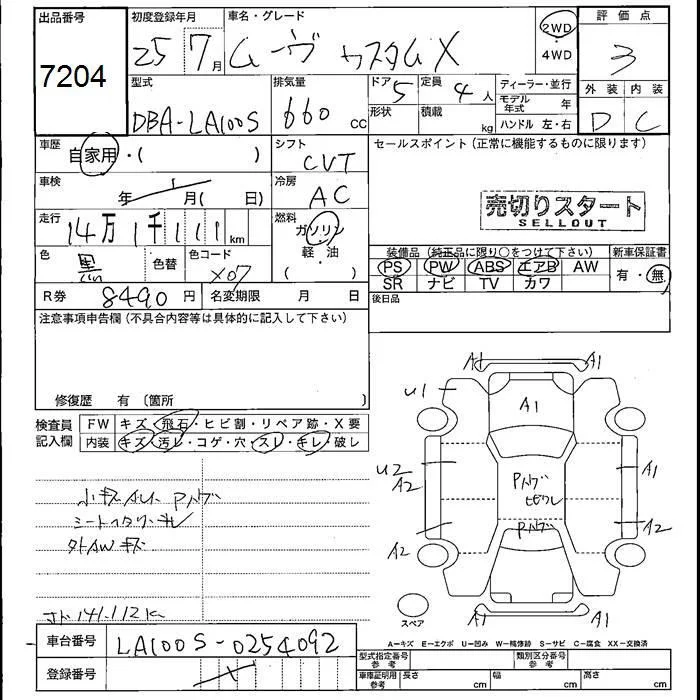 出品番号
7204
初度登録年月
25 7月
車名・グレード
ムーヴ カスタムX
2WD
・
4WD
評価点
3
外装 内装
D C
型式
DBA-LA100S
排気量
660 cc
ドア 5
定員 4 人
形状
積載 kg
ディーラー・並行
モデル年式 年
ハンドル 左・右
車歴
自家用・( )
シフト
CVT
セールスポイント(正常に機能するものに限ります)
車検
年 月( 日)
冷房
AC
売切りスタート
SELLOUT
走行
14万1千111km
燃料
ガソリン
軽・油
( )
色
黒
色替
色コード
X07
装備品(純正品に限り○をつけて下さい)
新車保証書
PS PW ABS エアB AW
SR ナビ TV カワ
有・無
R券
8490円
名変期限 月 日
後日品
注意事項申告欄(不具合内容等は具体的に記入して下さい)
修復歴 有 〔箇所 〕
検査員
記入欄
FW キズ・飛石・ヒビ割・リペア跡・X要
内装 キズ・汚レ・コゲ・穴・スレ・キレ・破レ
小キズAUェ
シートヘタリ・キレ
外AWキズ
メーター141,112K
A1 A1
U1 A1
U2
A2 A1
A2 A2
A1 A1
スペア
A−キズ E−エクボ U−凹み W−補修跡 S−サビ C−腐食 XX−交換済
車台番号
LA100S-0254092
登録番号
型式指定番号
参考
類別区分番号
参考
車庫証明用
参考
長さ cm 幅 cm 高さ cm